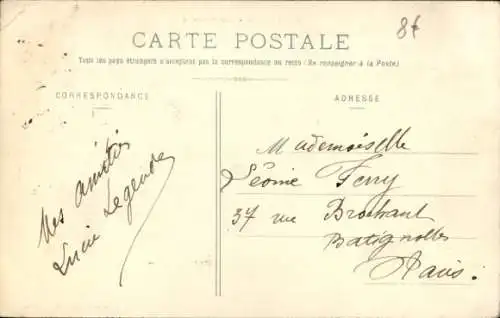 8€
CARTE POSTALE
Tous les pays étrangers n'acceptent pas la correspondance au recto (Se renseigner à la Poste)
CORRESPONDANCE
ADRESSE
Mes amitiés
Lucie Legendre
Mademoiselle
Léonie Ferry
37 rue Brochant
Batignolles
Paris.